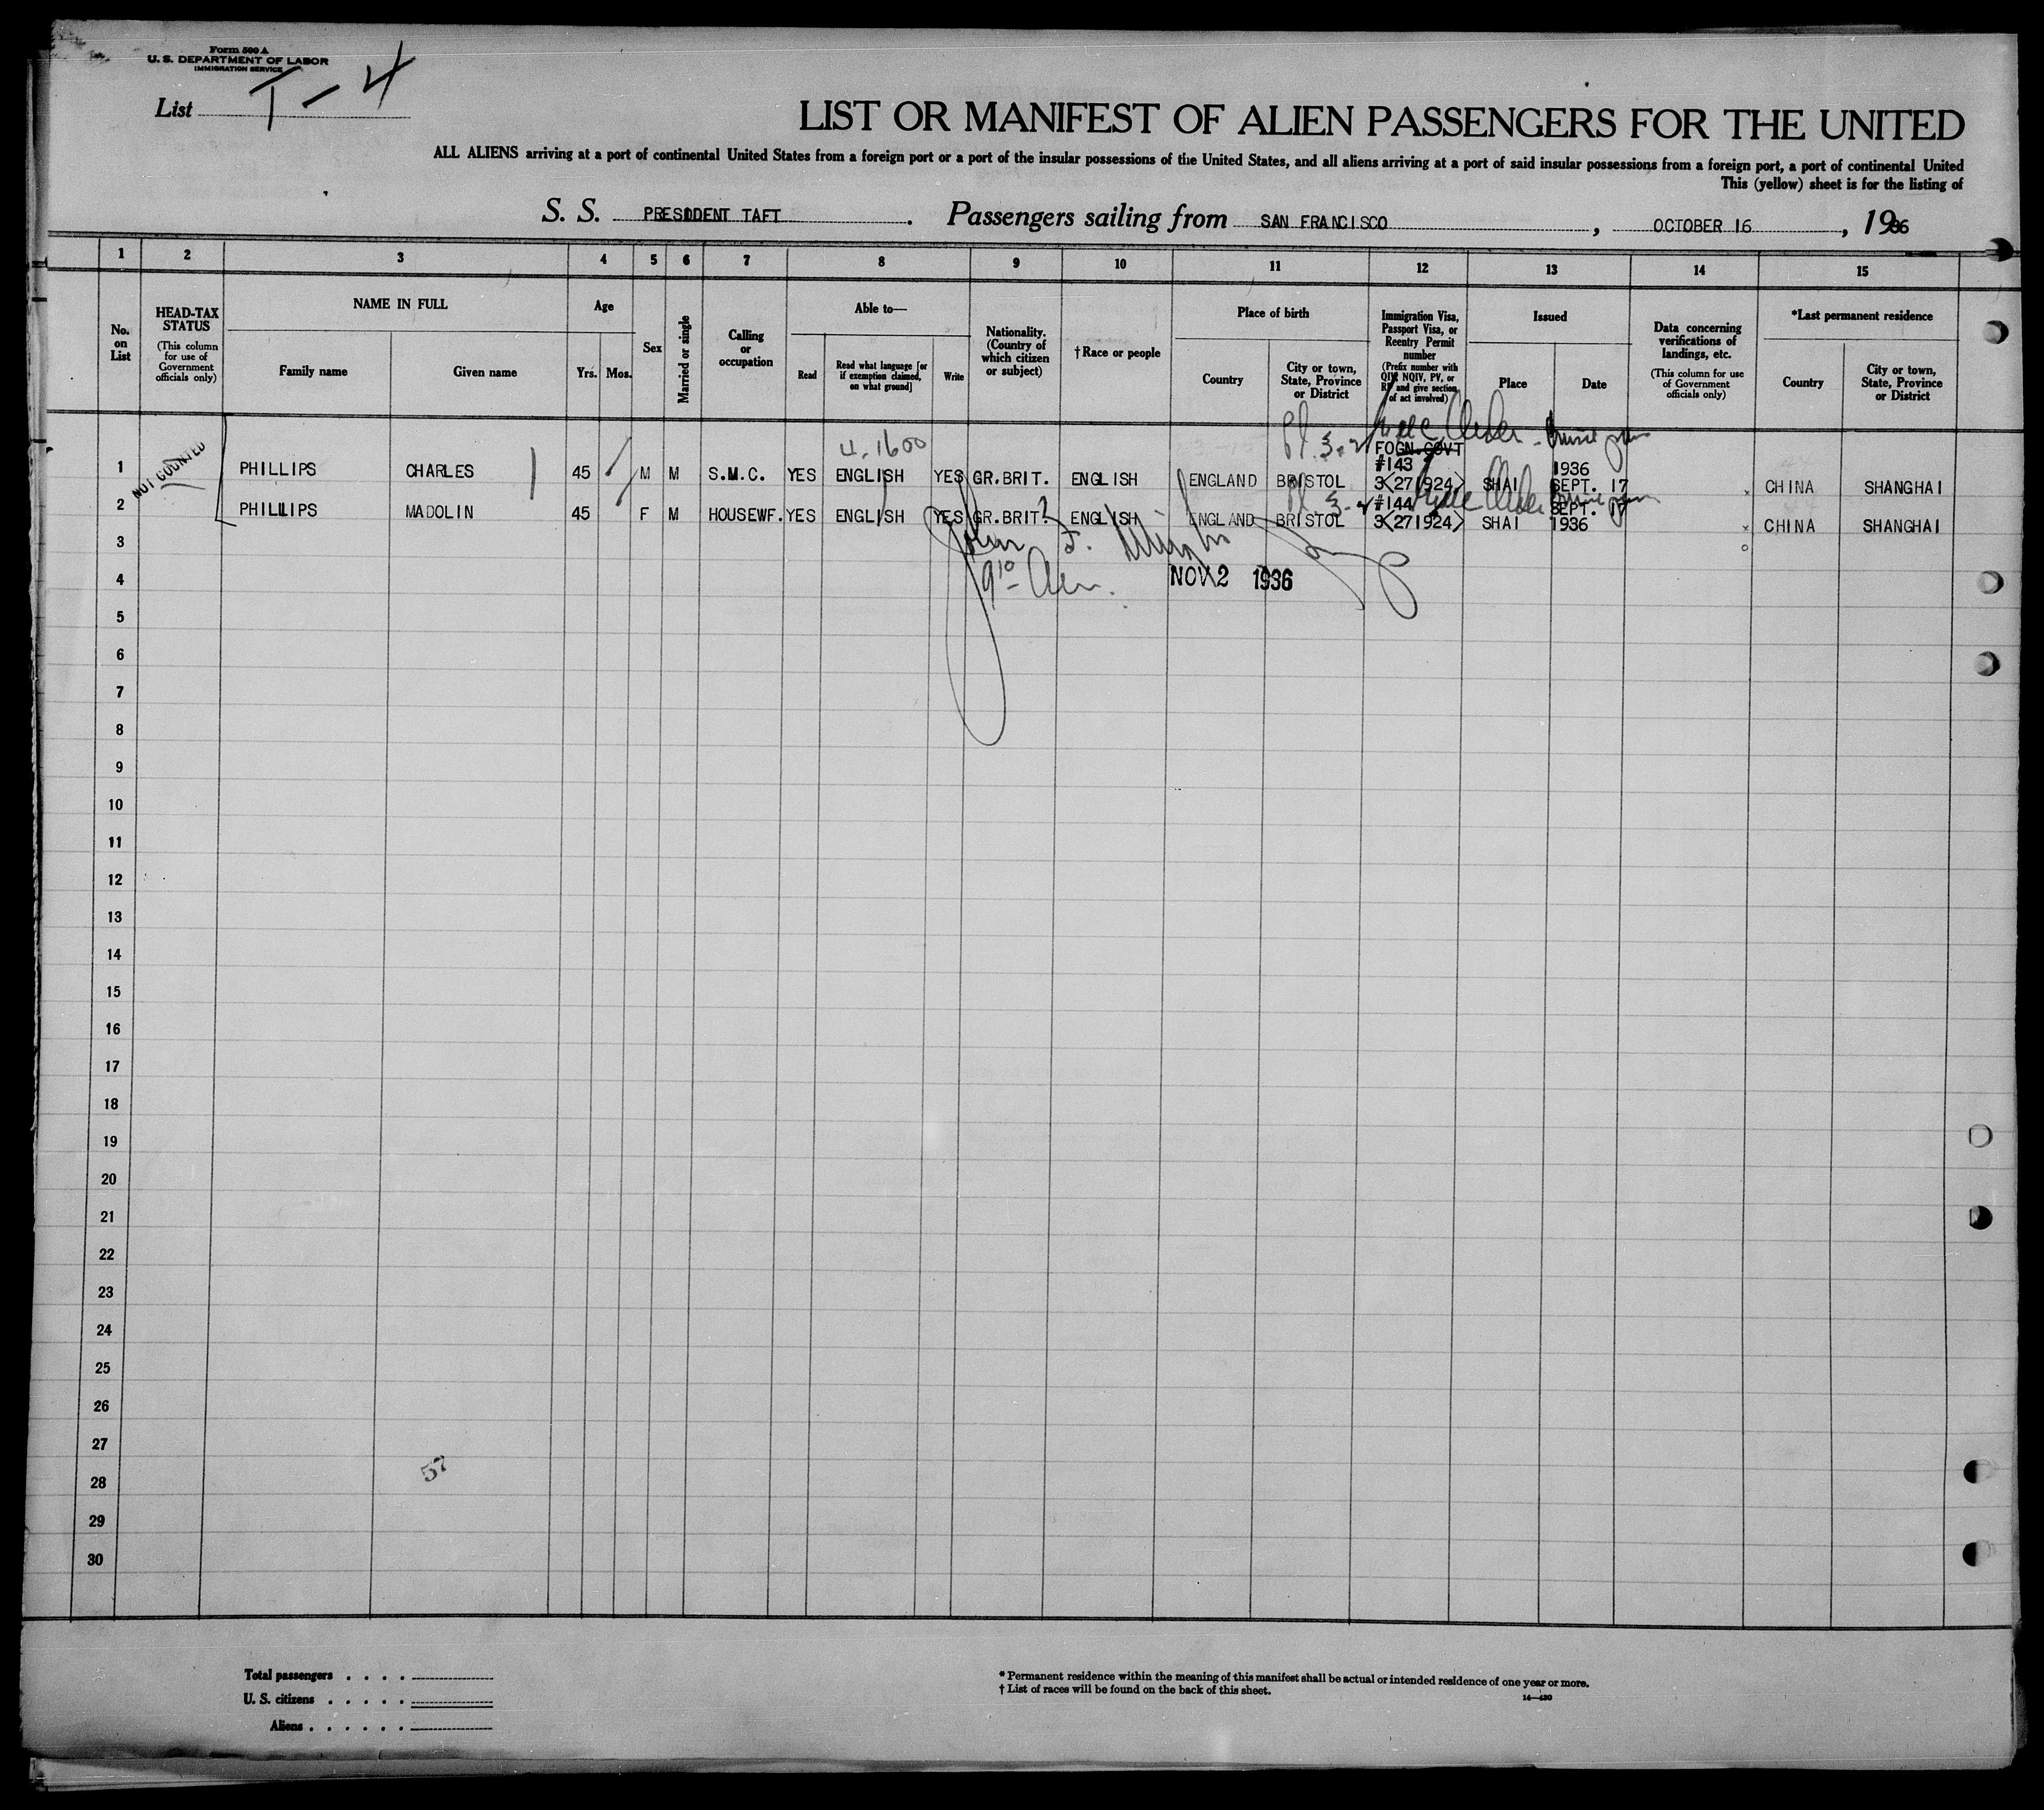 Form 500 A
U. S. DEPARTMENT OF LABOR
IMMIGRATION SERVICE
List T-4
LIST OR MANIFEST OF ALIEN PASSENGERS FOR THE UNITED
ALL ALIENS arriving at a port of continental United States from a foreign port or a port of the insular possessions of the United States, and all aliens arriving at a port of said insular possessions from a foreign port, a port of continental United
This (yellow) sheet is for the listing of
S. S. PRESIDENT TAFT . Passengers sailing from SAN FRANCISCO , OCTOBER 16 , 1936
1 2 3 4 5 6 7 8 9 10 11 12 13 14 15
No. on List
HEAD-TAX STATUS
(This column for use of Government officials only)
NAME IN FULL
Family name
Given name
Age
Yrs. Mos.
Sex
Married or single
Calling or occupation
Able to—
Read
Read what language [or if exemption claimed, on what ground]
Write
Nationality. (Country of which citizen or subject)
†Race or people
Place of birth
Country
City or town, State, Province or District
Immigration Visa, Passport Visa, or Reentry Permit number
(Prefix number with QIV, NQIV, PV, or RP and give section of act involved)
Issued
Place
Date
Data concerning verifications of landings, etc.
(This column for use of Government officials only)
*Last permanent residence
Country
City or town, State, Province or District
4-1600
FOGN.GOVT
#143 1936
NOT COUNTED
1 PHILLIPS CHARLES 45 M M S.M.C. YES ENGLISH YES GR.BRIT. ENGLISH ENGLAND BRISTOL 3<271924> SHAI SEPT. 17 CHINA SHANGHAI
#144 SEPT. 17
2 PHILLIPS MADOLIN 45 F M HOUSEWF. YES ENGLISH YES GR.BRIT. ENGLISH ENGLAND BRISTOL 3<271924> SHAI 1936 CHINA SHANGHAI
3
John F.
4
NOV 2 1936
5
6
7
8
9
10
11
12
13
14
15
16
17
18
19
20
21
22
23
24
25
26
27
57
28
29
30
Total passengers . . . .
U. S. citizens . . . . .
Aliens . . . . . .
* Permanent residence within the meaning of this manifest shall be actual or intended residence of one year or more.
† List of races will be found on the back of this sheet.
14—430